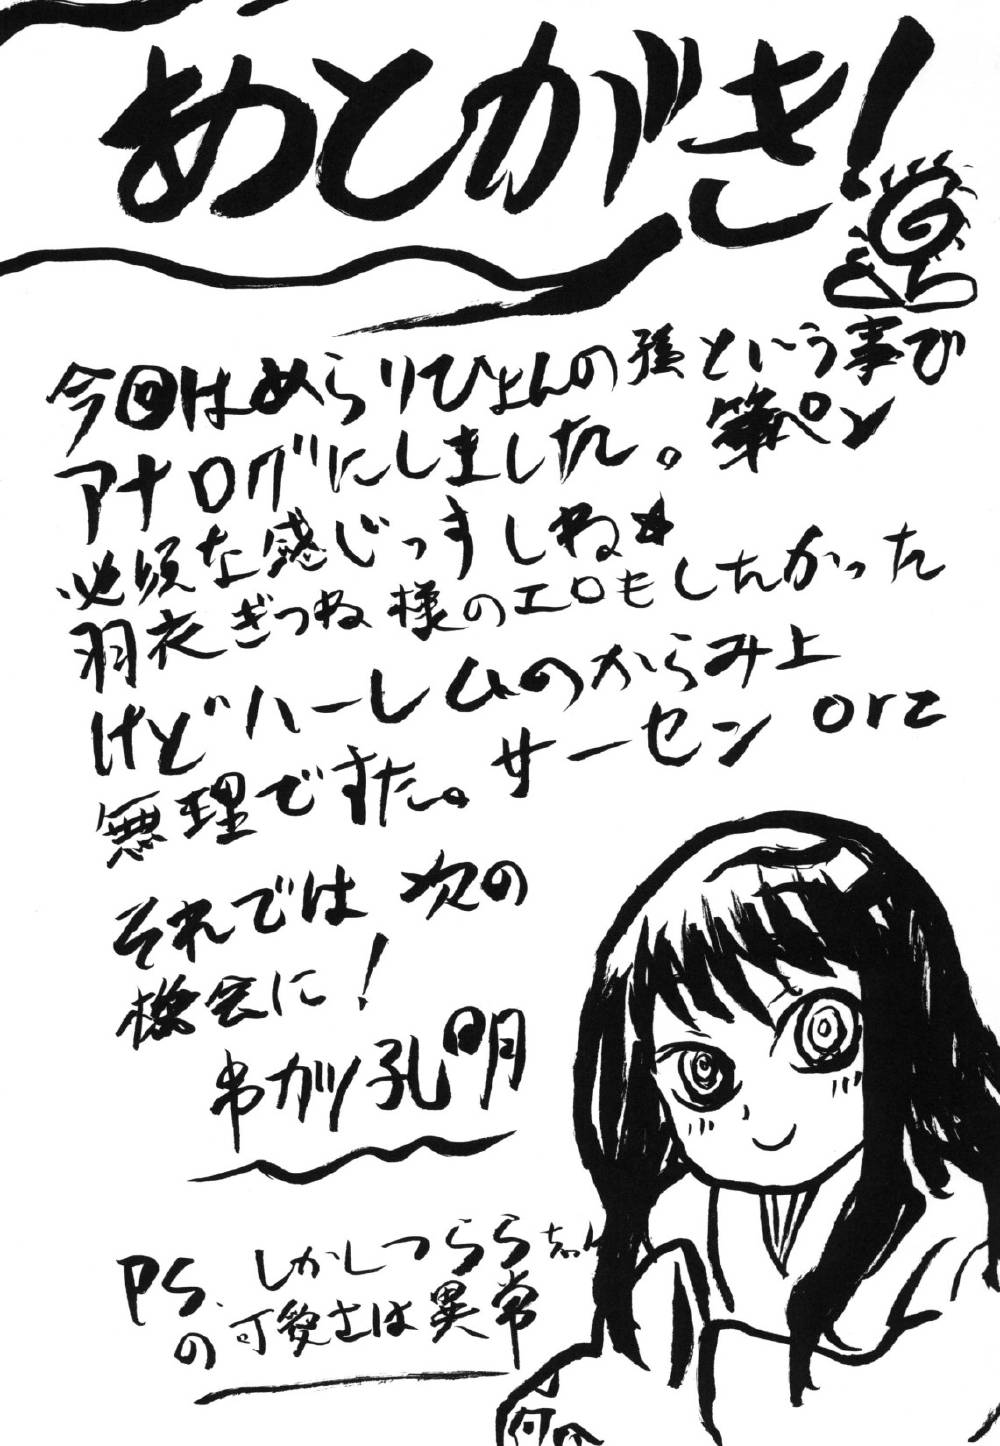 あとがき!
今回はぬらりひょんの孫という事で
アナログにしました。筆ペン
必須な感じっすしね★
羽衣ぎつね様のエロもしたかった
けどハーレムのからみ上
無理ですた。サーセン orz
それでは次の
機会に!
串カツ孔明
PS.しかしつららちゃん
の可愛さは異常